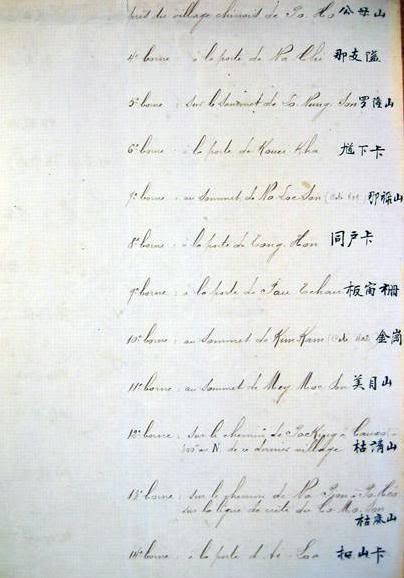 près du village chinois de Pa Ho 公母山
4e borne : à la porte de Na Chi 那支隘
5e borne : sur le sommet de La Nung Son 罗隆山
6e borne : à la porte de Kouei Kha 馗下卡
7e borne : au sommet de Na Loc Son (Côte 401) 那禄山
8e borne : à la porte de Tong Hou 同戶卡
9e borne : à la porte de Pan Tchau 板窗栅
10e borne : au sommet de Kim Kam (Côte) 金崗
11e borne : au sommet de Mey Moc Son 美目山
12e borne : sur le chemin de à
au N. de ce dernier village 枯清山
13e borne : sur le chemin de Na à
sur la ligne de crête du Co Ma Son
枯麻山
14e borne : à la porte d'Ai Loa 扣山卡